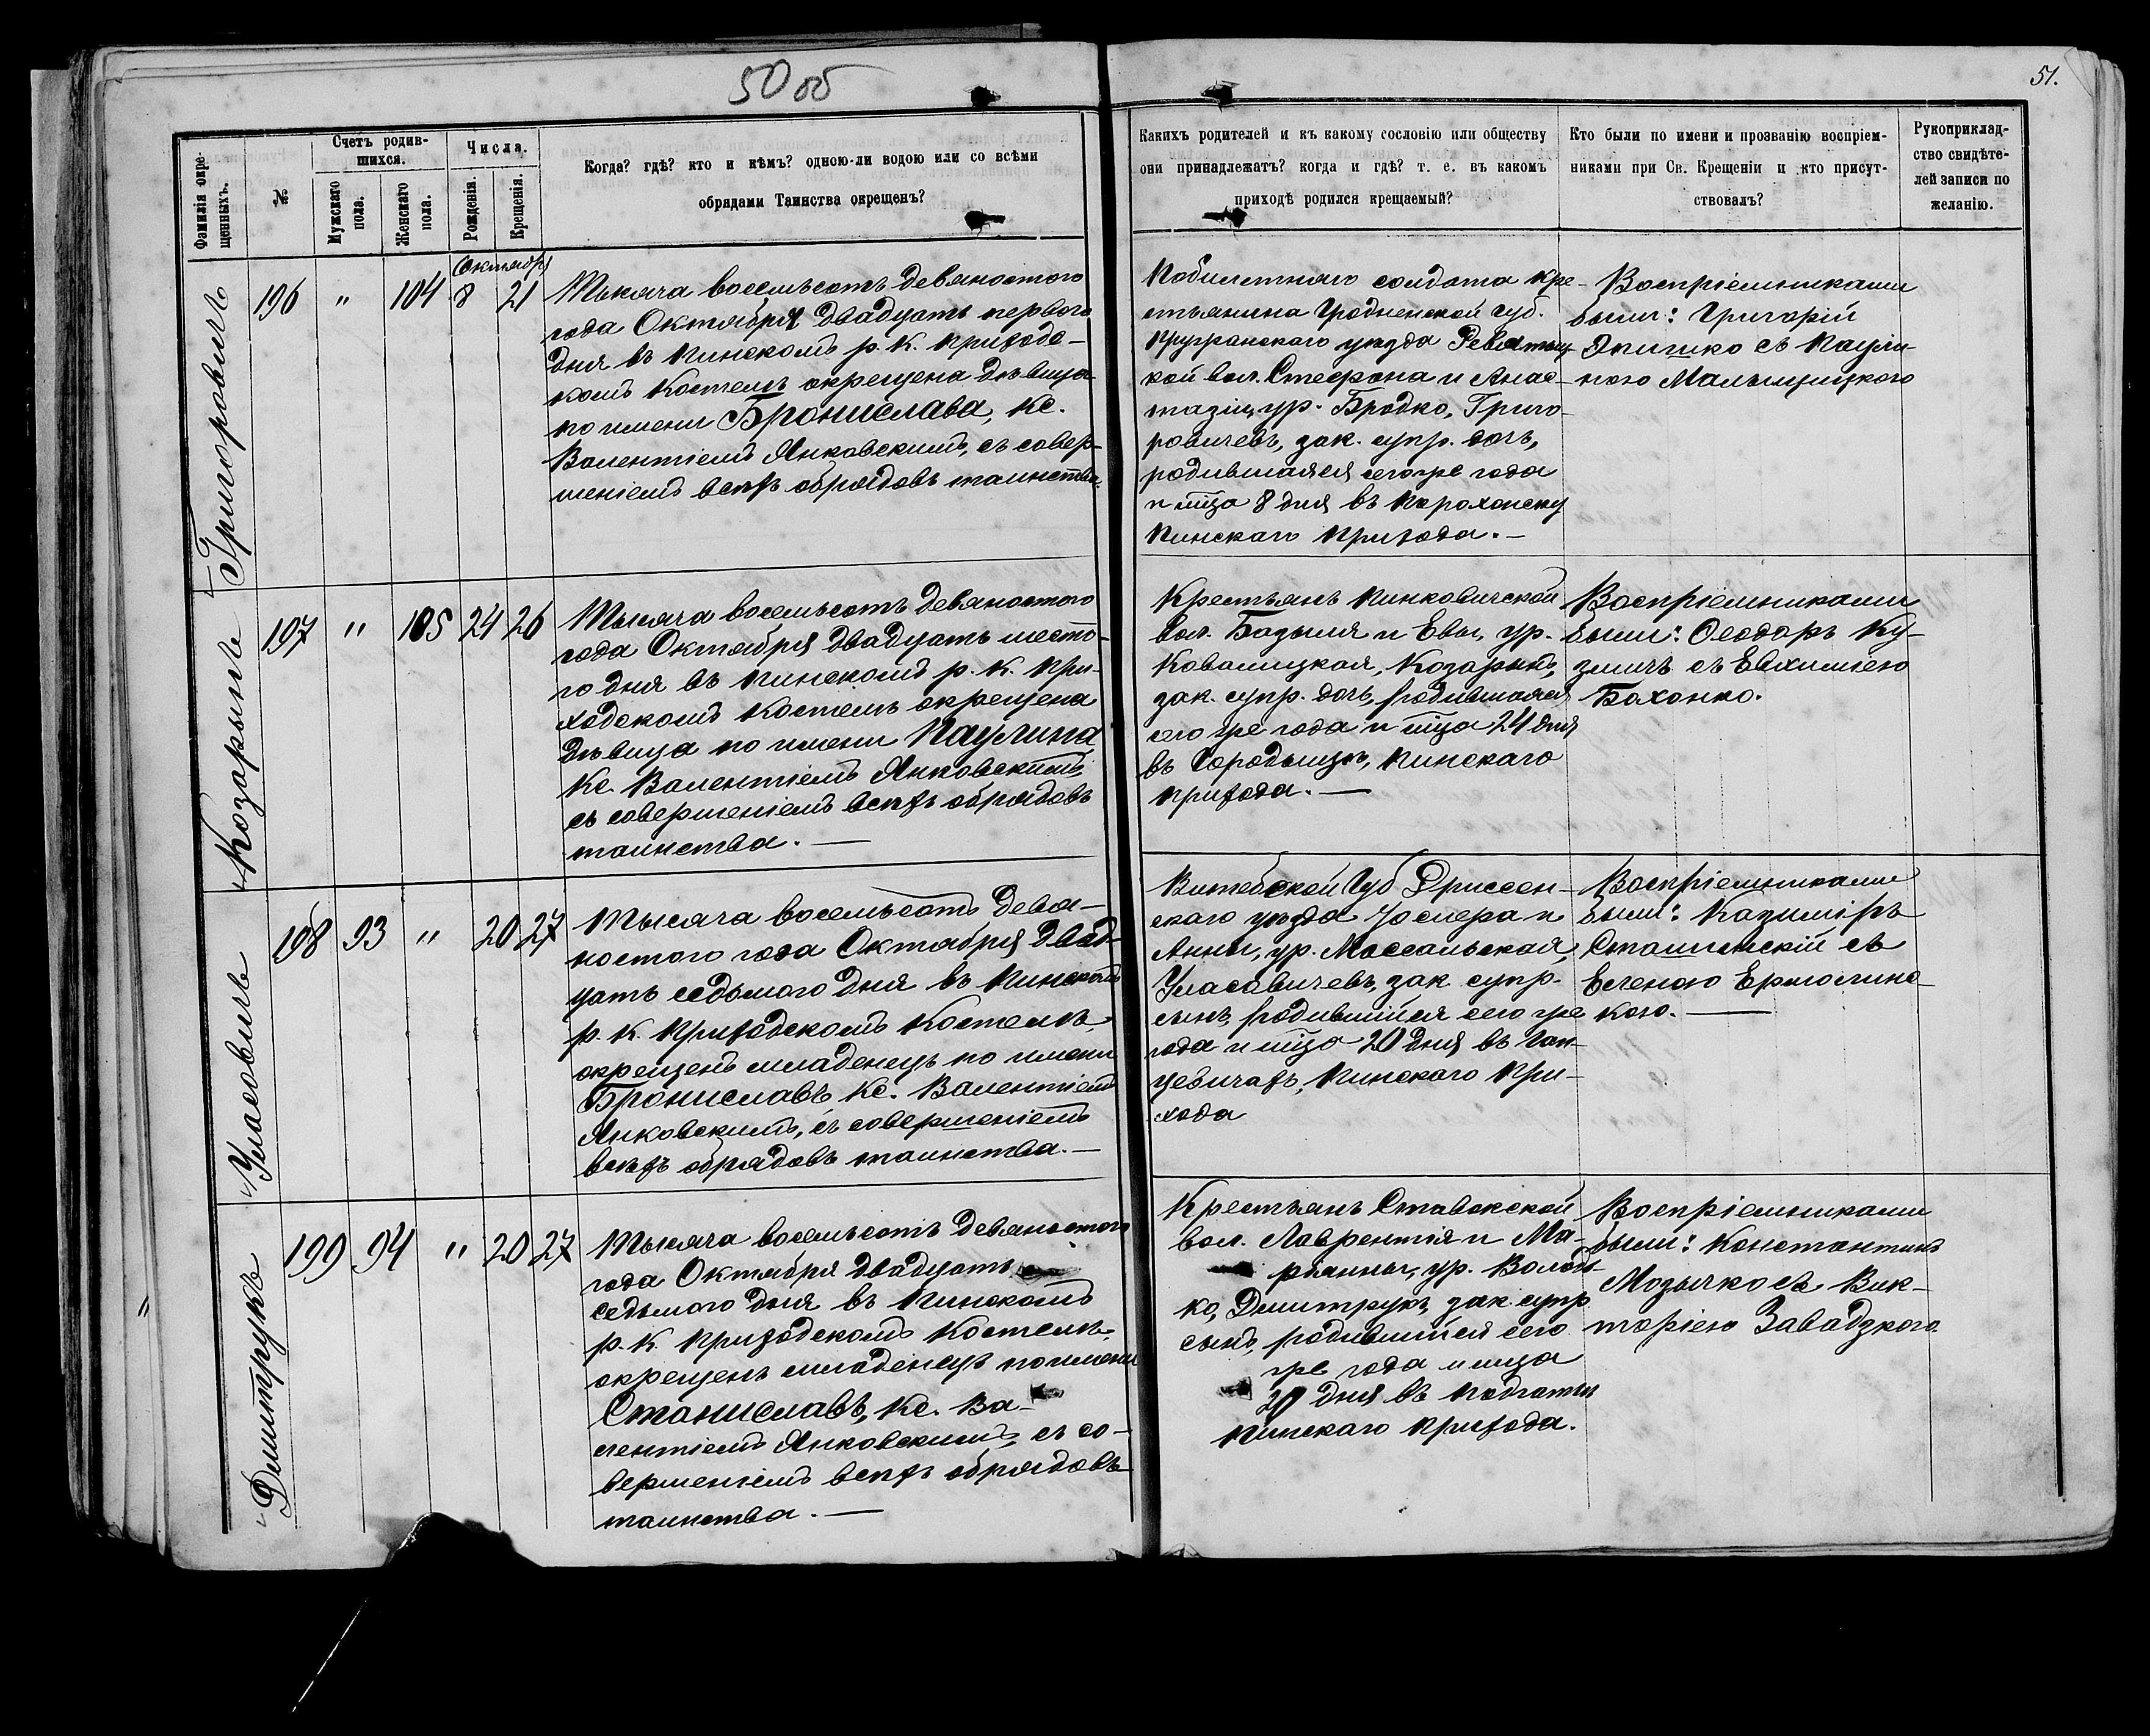 50 об
51.
Фамилія окре-
щенныхъ.
№
Счетъ родив-
шихся.
Мужскаго
пола.
Женскаго
пола.
Числа.
Рожденія.
Крещенія.
Когда? гдѣ? кто и кѣмъ? одною-ли водою или со всѣми
обрядами Таинства окрещенъ?
Какихъ родителей и къ какому сословію или обществу
они принадлежатъ? когда и гдѣ? т. е. въ какомъ
приходѣ родился крещаемый?
Кто были по имени и прозванію воспріем-
никами при Св. Крещеніи и кто присут-
ствовалъ?
Рукоприклад-
ство свидѣте-
лей записи по
желанію.
Григоровичъ
196 " 104
Октября
8 21
Тысяча восемьсотъ девяностого
года Октября двадцать перваго
дня въ Пинскомъ р. к. приходс-
комъ костелѣ окрещена дѣвица
по имени Бронислава, кс.
Валентіемъ Янковскимъ, съ совер-
шеніемъ всѣхъ обрядовъ таинства.
солдата кре-
стьянина Гродненской губ.
Пружанскаго уѣзда
кой вол. Стефана и Анас-
тазіи, ур. Бродко, Григо-
ровичевъ, зак. супр. дочь,
родившаяся сего же года
и мѣца 8 дня въ Парохонску
Пинскаго прихода.-
Воспріемниками
были: Григорій
съ Паули-
ною
Козарынъ
197 " 105 24 26
Тысяча восемьсотъ девяностого
года Октября двадцать шесто-
го дня въ Пинскомъ р. к. при-
ходскомъ костелѣ окрещена
дѣвица по имени Паулина
Кс. Валентіемъ Янковскимъ,
съ совершеніемъ всѣхъ обрядовъ
таинства.—
Крестьянъ Пинковичской
вол. Базыля и Евы, ур.
Ковалицкая, Козарынъ,
зак. супр. дочь, родившаяся
сего же года и мѣца 24 дня
въ Городыщѣ, Пинскаго
прихода.—
Воспріемниками
были: Ѳеодоръ Ку-
зличъ съ Евхиміею
Бахонко.
Уласовичъ
198 93 " 20 27
Тысяча восемьсотъ девя-
ностого года Октября двад-
цать седьмого дня въ Пинскомъ
р. к. приходскомъ костелѣ,
окрещенъ младенецъ по имени
Брониславъ, кс. Валентіемъ
Янковскимъ, съ совершеніемъ
всѣхъ обрядовъ таинства.—
Витебской Губ Дриссен-
скаго уѣзда и
Анны, ур. Массальская,
Уласовичевъ, зак. супр.
сынъ, родившійся сего же
года и мѣца 20 дня въ Ган-
цевичахъ, Пинскаго при-
хода
Воспріемниками
были: Казиміръ
съ
Еленою Ермолинс-
кого.—
Дмитрукъ
199 94 " 20 27
Тысяча восемьсотъ девяностого
года Октября двадцать
седьмого дня въ Пинскомъ
р. к. приходскомъ костелѣ,
окрещенъ младенецъ по имени
Станиславъ, кс. Ва-
лентіемъ Янковскимъ, съ со-
вершеніемъ всѣхъ обрядовъ
таинства.—
Крестьянъ Ставокской
вол. Лаврентія и Ма-
рьянны, ур. Володь-
ко, Дмитрукъ, зак. супр.
сынъ, родившійся сего
же года и мѣца
20 дня въ
Пинскаго прихода.
Воспріемниками
были: Константинъ
Мозычко съ Вик-
торіею Завадзкого.